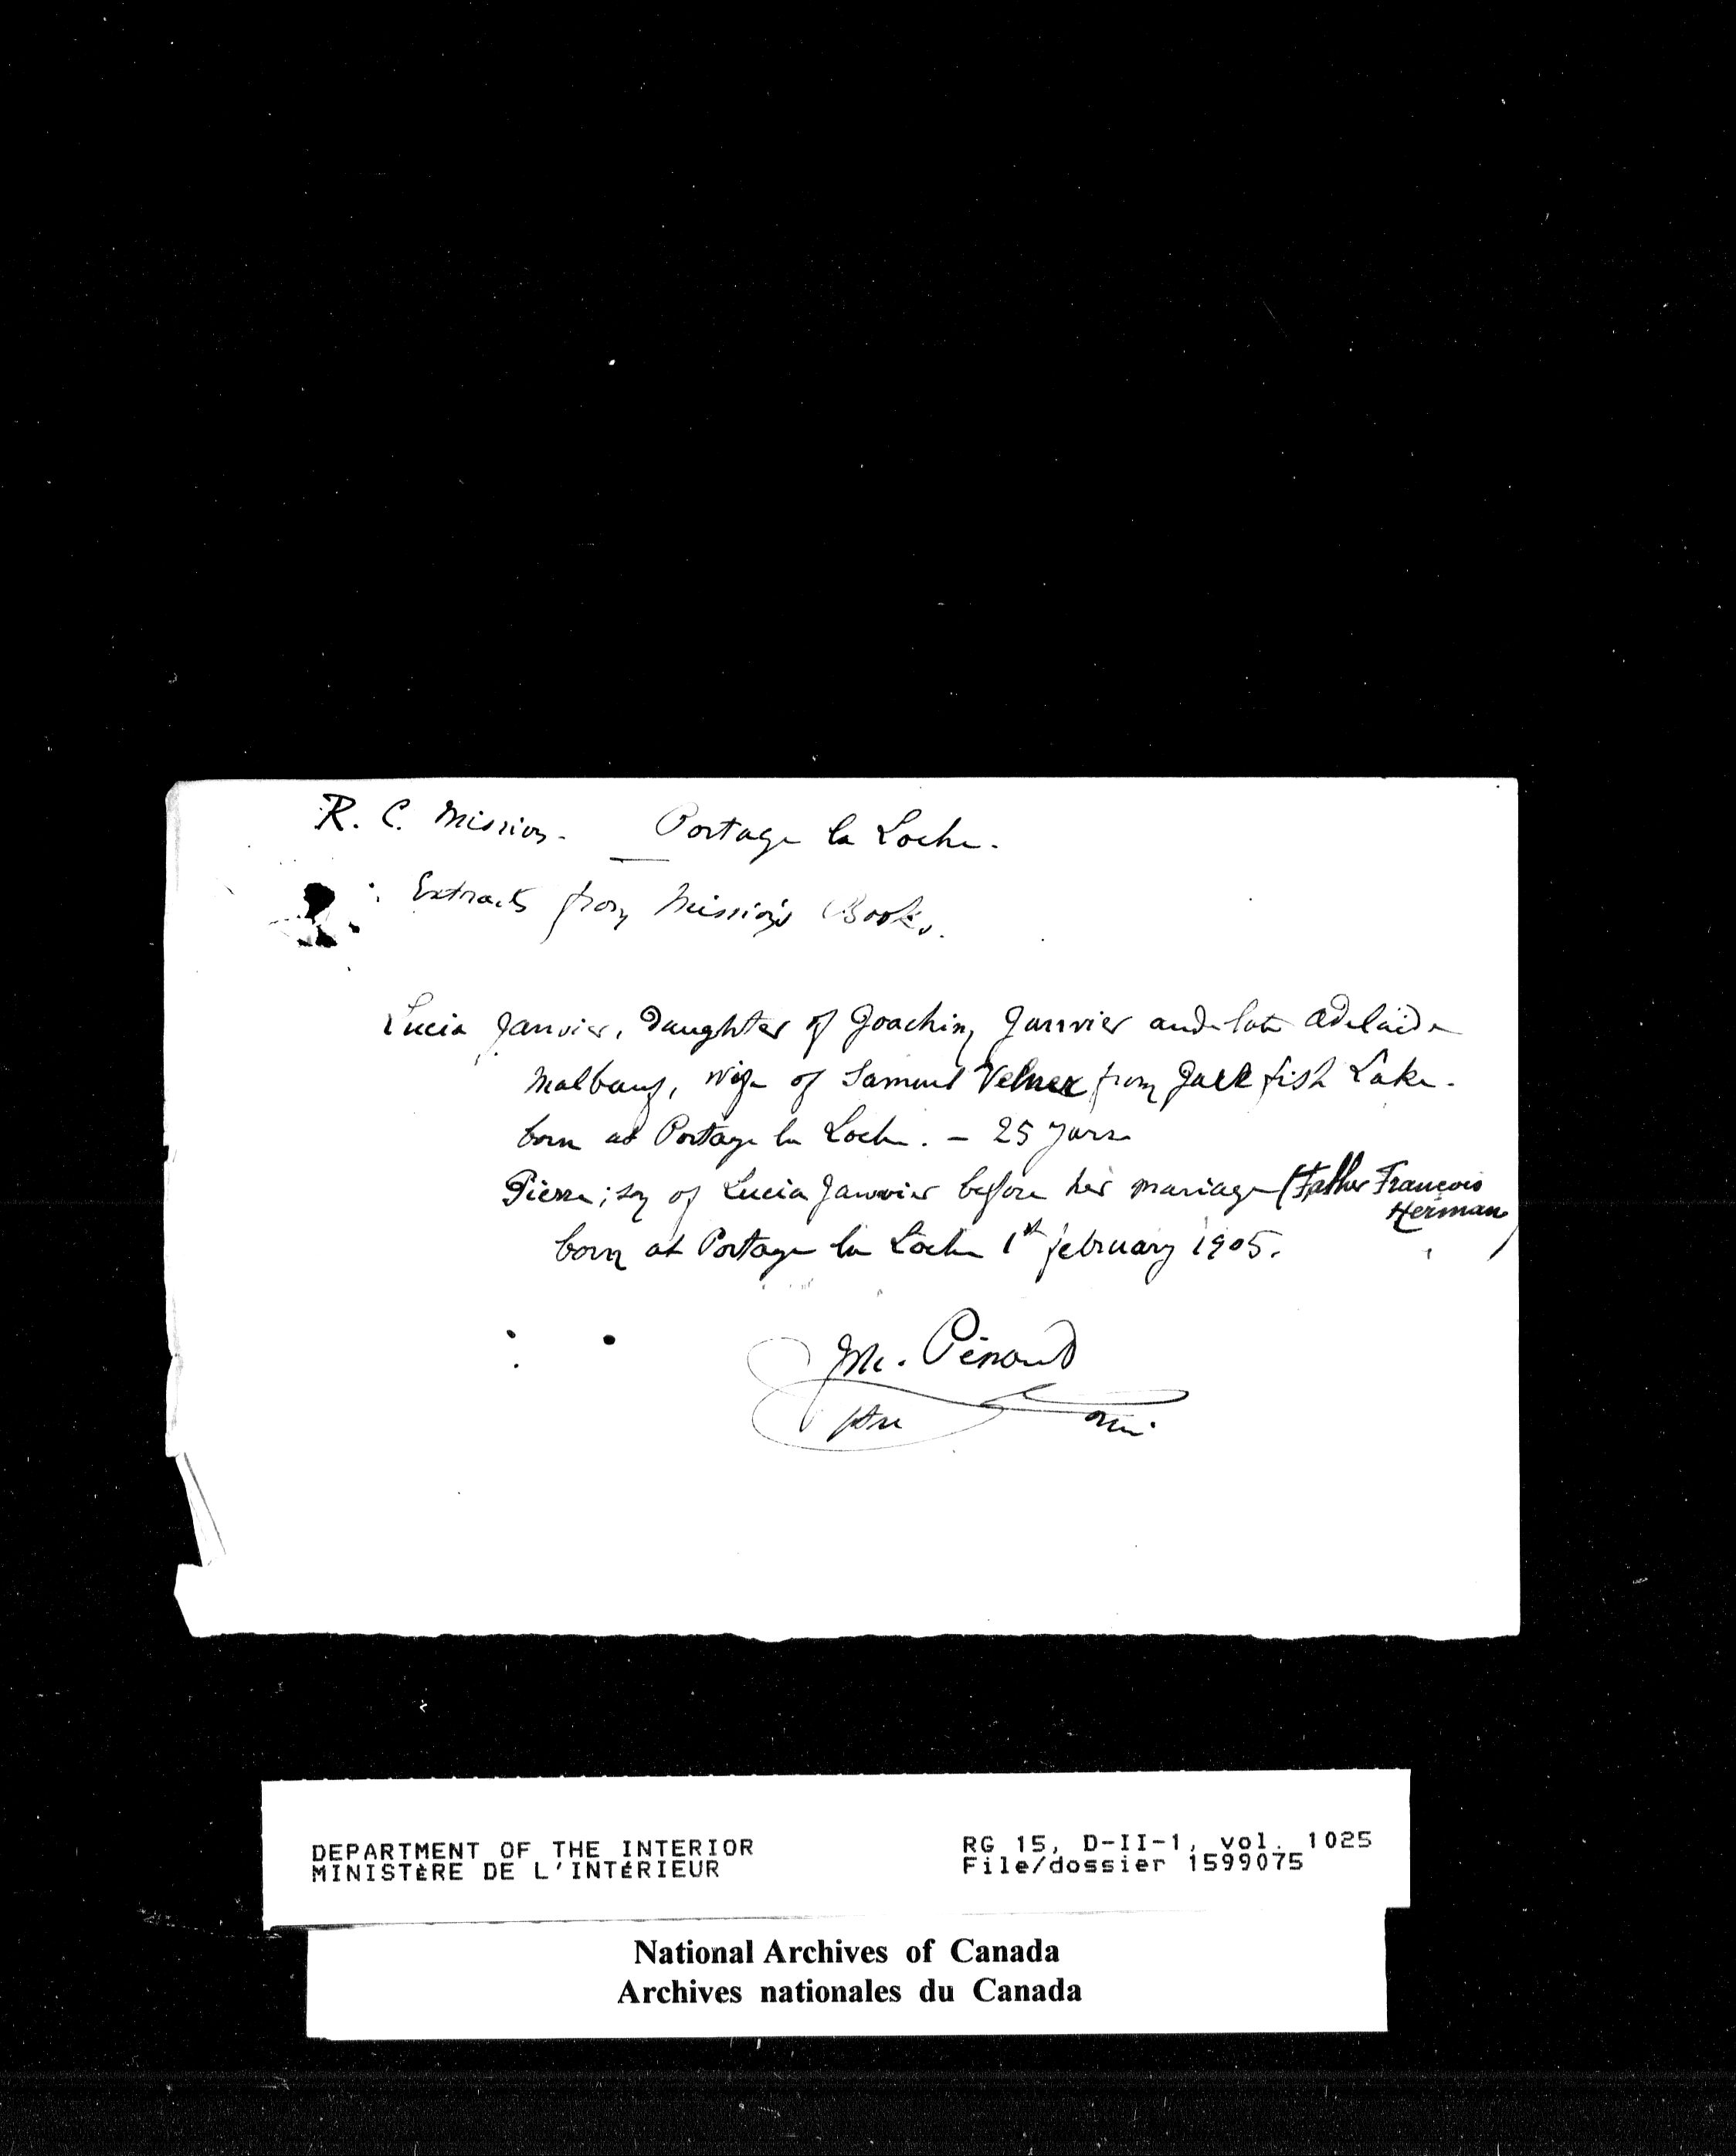 R. C. Mission. Portage la Loche.
Extracts from Mission's Books.
Lucia Janvier, Daughter of Joachim Janvier and late Adelaide
Malbœuf, wife of Samuel Velner from Jack fish Lake.
born at Portage la Loche. - 25 years
Pierre; son of Lucia Janvier before her mariage (Father François
Herman)
born at Portage la Loche 1st february 1905.
J M. Pénard
ptre omi.
DEPARTMENT OF THE INTERIOR
MINISTÈRE DE L'INTÉRIEUR
RG 15, D-II-1, vol. 1025
File/dossier 1599075
National Archives of Canada
Archives nationales du Canada